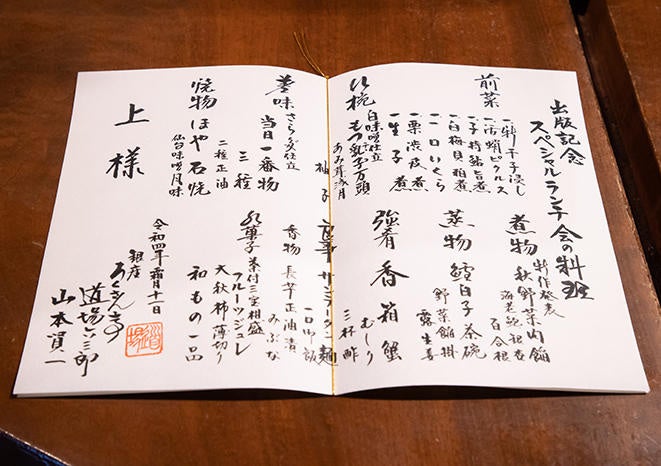 出版記念
スペシャルランチ会の料理
前菜
一、料干子浸し
一、市蛸ピクルス
一、子持鮎旨煮
一、白梅貝粕煮
一、一口いくら
一、栗渋皮煮
一、生子煮
煮物
新作発表
秋野菜肉餡
海老 銀杏 百合根
蒸物
鱈白子茶碗
野菜餡掛
露生姜
強肴
香箱蟹
むしり
三杯酢
白味噌仕立
もつ乳子万頭
あみ茸
柚子
当日一番物
三種
二種正油
焼物
ほや石焼
仙台味噌風味
食事
サンラータン麺
香物
長芋正油漬
みぶな
水菓子
茶付三宝柑盛
フルーツジュレ
太秋柿薄切り
和もの一品
上様
令和四年霜月十一日
銀座
ろくさん亭
道場六三郎
山本員一
道場